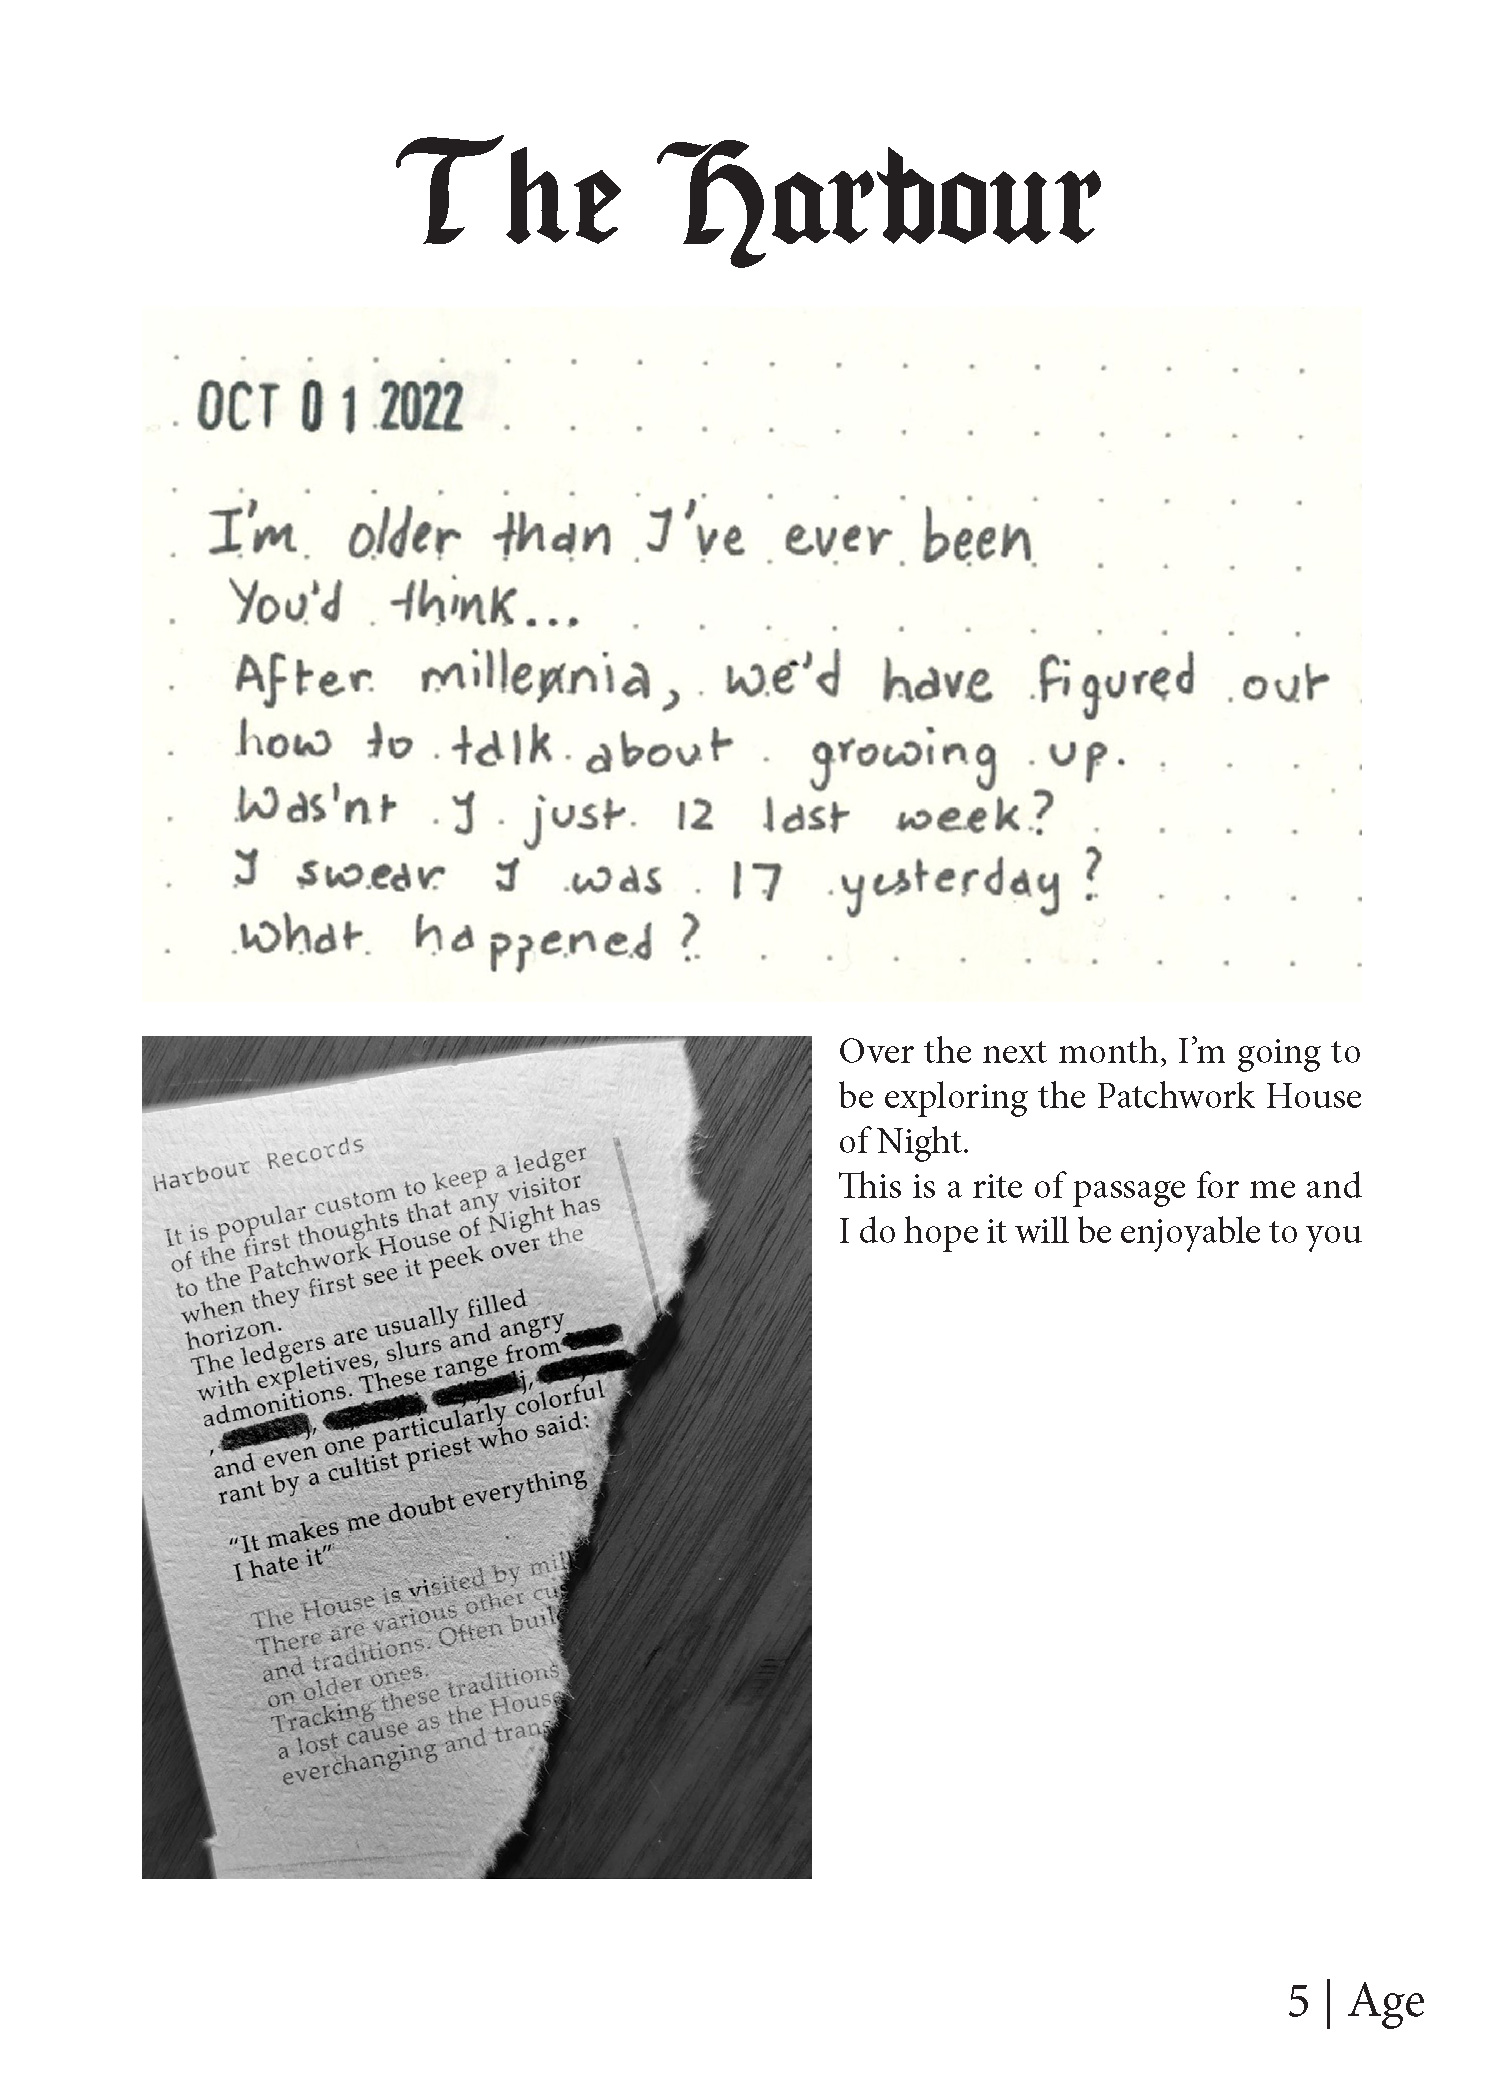 The Harbour
OCT 01 2022
I'm older than I've ever been
You'd think...
After millennia, we'd have figured out
how to talk about growing up.
Was'nt I just 12 last week?
I swear I was 17 yesterday?
What happened?
Harbour Records
It is popular custom to keep a ledger
of the first thoughts that any visitor
to the Patchwork House of Night has
when they first see it peek over the
horizon.
The ledgers are usually filled
with expletives, slurs and angry
admonitions. These range from
, j, j,
and even one particularly colorful
rant by a cultist priest who said:
“It makes me doubt everything
I hate it”
The House is visited by mil
There are various other cus
and traditions. Often buil
on older ones.
Tracking these traditions
a lost cause as the House
everchanging and trans
Over the next month, I’m going to
be exploring the Patchwork House
of Night.
This is a rite of passage for me and
I do hope it will be enjoyable to you
5 | Age